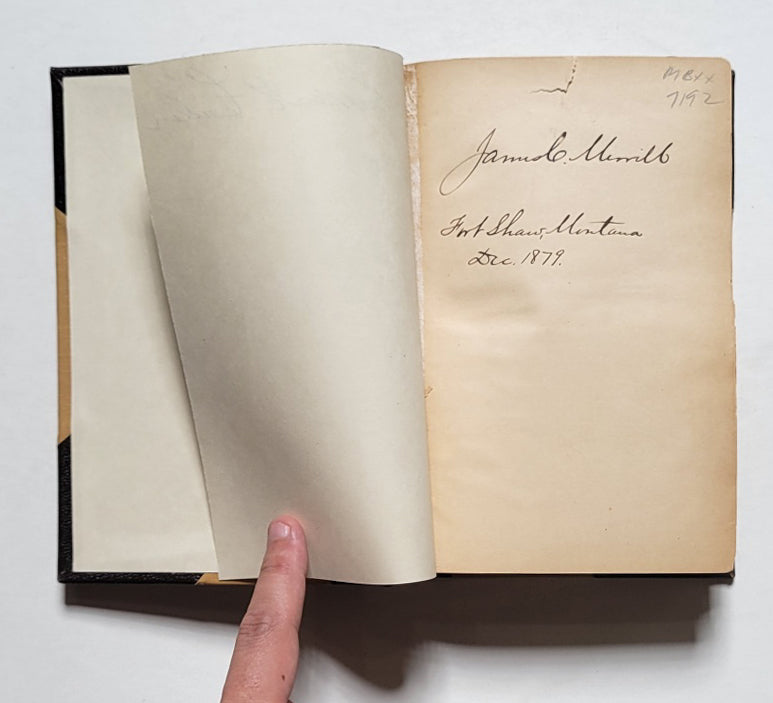 MBxx
7192
James C. Merrill
Fort Shaw, Montana
Dec. 1879.